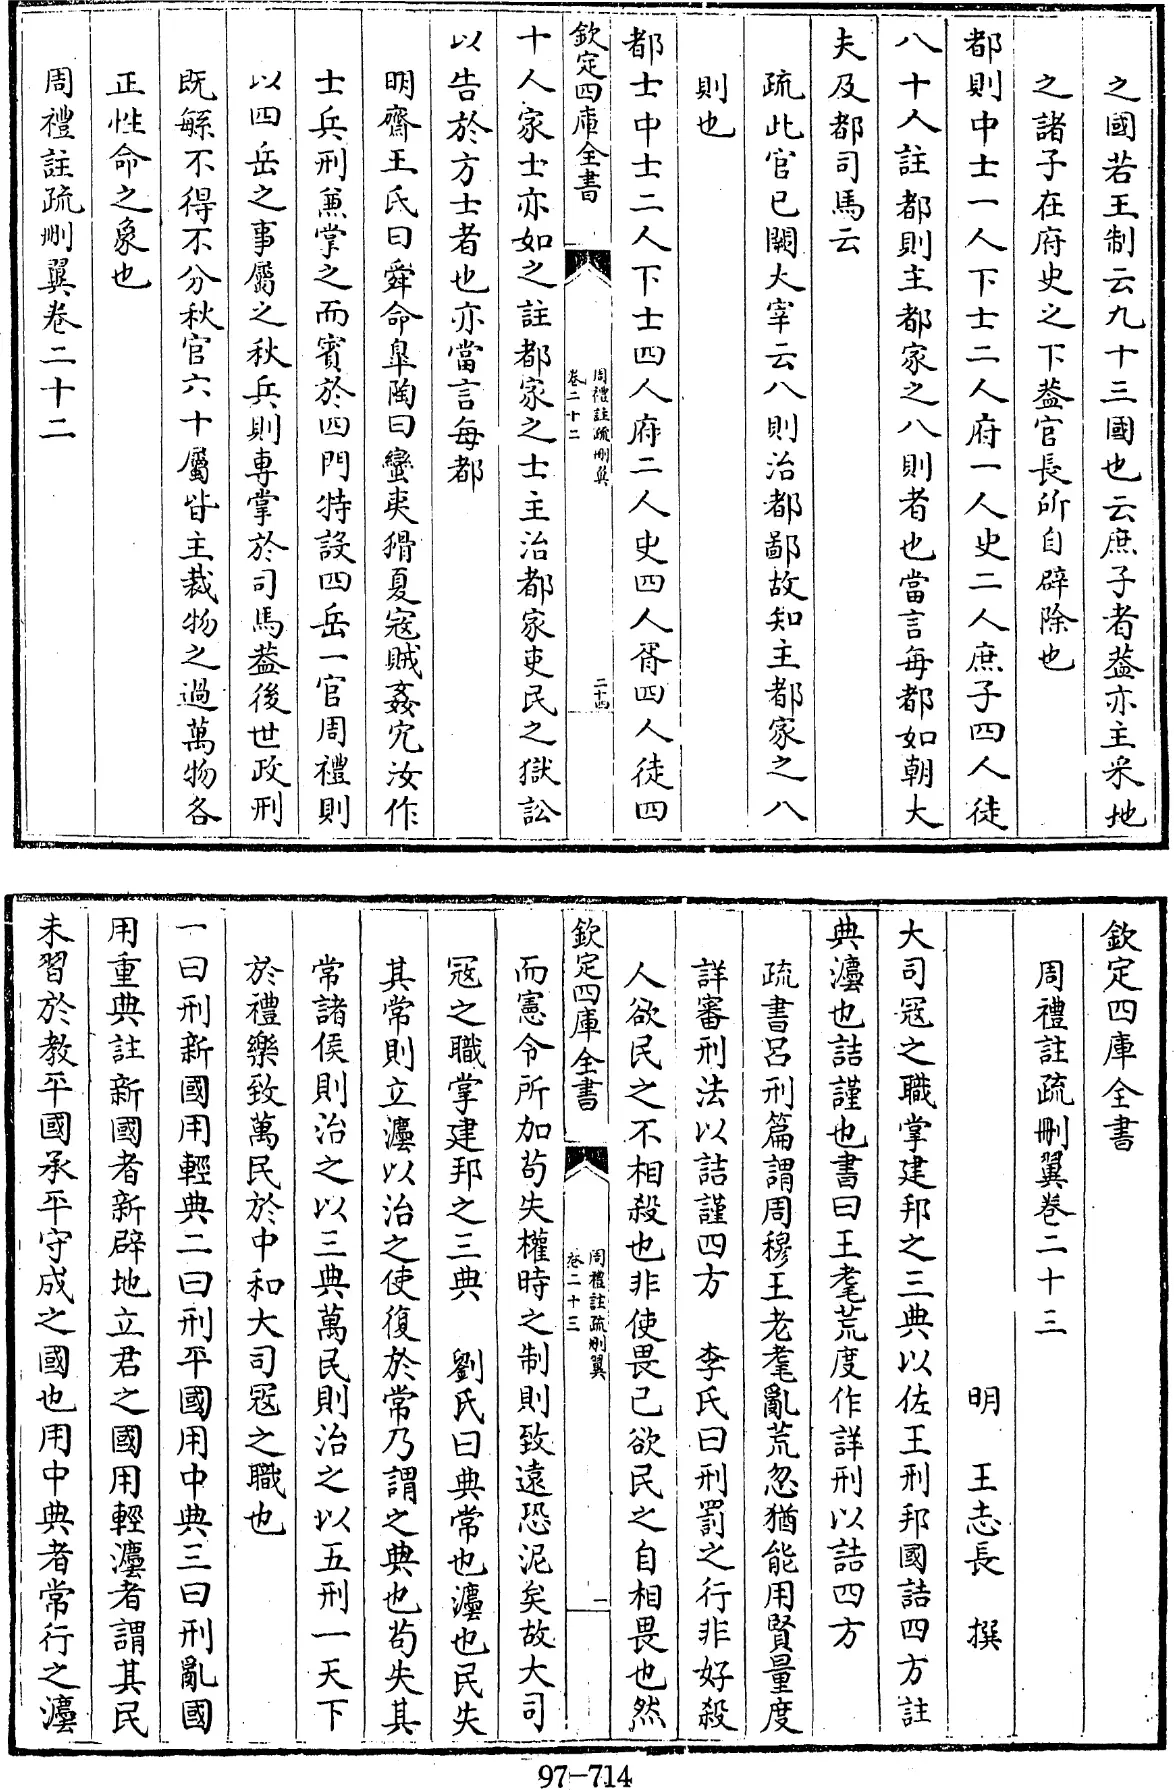 之國若王制云九十三國也云庶子者葢亦主采地
之諸子在府史之下葢官長所自辟除也
都則中士一人下士二人府一人史二人庶子四人徒
八十人註都則主都家之八則者也當言每都如朝大
夫及都司馬云
疏此官已闕大宰云八則治都鄙故知主都家之八
則也
都士中士二人下士四人府二人史四人胥四人徒四
欽定四庫全書
周禮註疏刪翼
卷二十二
二十四
十人家士亦如之註都家之士主治都家吏民之獄訟
以告於方士者也亦當言每都
明齋王氏曰舜命臯陶曰蠻夷猾夏寇賊姦宄汝作
士兵刑兼掌之而賓於四門特設四岳一官周禮則
以四岳之事屬之秋兵則專掌於司馬葢後世政刑
既繇不得不分秋官六十屬皆主裁物之過萬物各
正性命之象也
周禮註疏刪翼卷二十二
欽定四庫全書
周禮註疏刪翼卷二十三
明 王志長 撰
大司寇之職掌建邦之三典以佐王刑邦國詰四方註
典灋也詰謹也書曰王耄荒度作詳刑以詰四方
疏書呂刑篇謂周穆王老耄亂荒忽猶能用賢量度
詳審刑法以詰謹四方 李氏曰刑罰之行非好殺
人欲民之不相殺也非使畏己欲民之自相畏也然
欽定四庫全書
周禮註疏刪翼
卷二十三
一
而憲令所加苟失權時之制則致遠恐泥矣故大司
寇之職掌建邦之三典 劉氏曰典常也灋也民失
其常則立灋以治之使復於常乃謂之典也苟失其
常諸侯則治之以三典萬民則治之以五刑一天下
於禮樂致萬民於中和大司寇之職也
一曰刑新國用輕典二曰刑平國用中典三曰刑亂國
用重典註新國者新辟地立君之國用輕灋者謂其民
未習於教平國承平守成之國也用中典者常行之灋
97-714